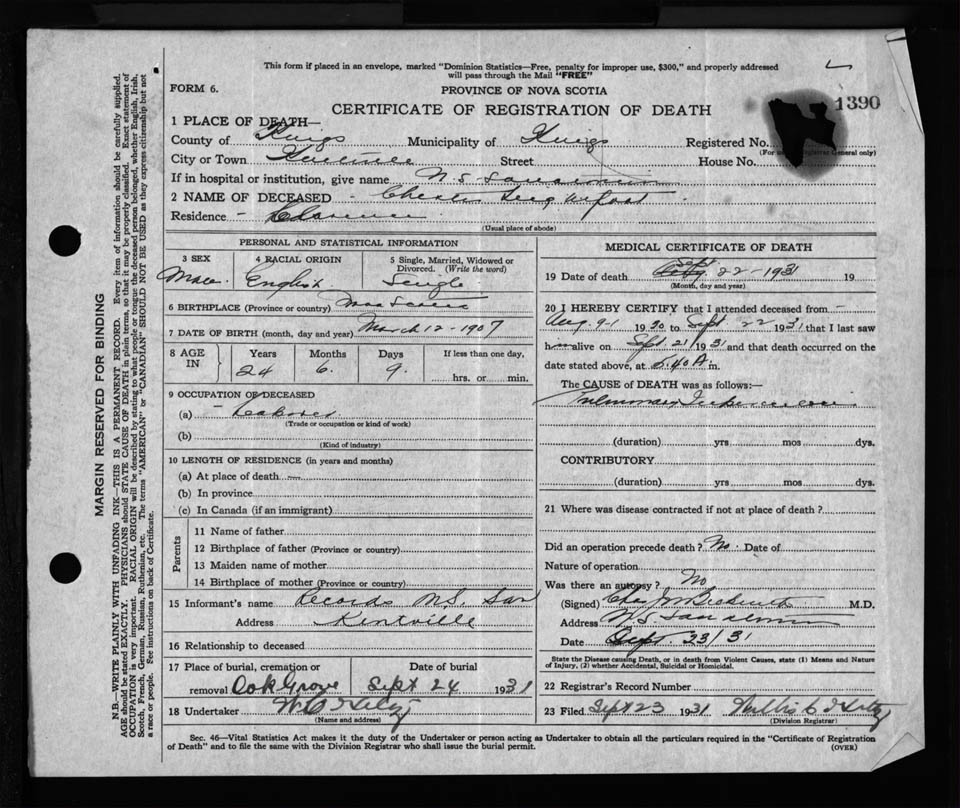 This form if placed in an envelope, marked "Dominion Statistics—Free, penalty for improper use, $300," and properly addressed
will pass through the Mail "FREE"
FORM 6.
PROVINCE OF NOVA SCOTIA
CERTIFICATE OF REGISTRATION OF DEATH
1390
1 PLACE OF DEATH—
County of Kings Municipality of Kings Registered No.
(For use of Registrar General only)
City or Town Kentville Street House No.
If in hospital or institution, give name N.S. Sanatorium
2 NAME OF DECEASED - Chester
Residence - Clarence
(Usual place of abode)
PERSONAL AND STATISTICAL INFORMATION
3 SEX Male
4 RACIAL ORIGIN English
5 Single, Married, Widowed or Divorced. (Write the word) Single
6 BIRTHPLACE (Province or country) Nova Scotia
7 DATE OF BIRTH (month, day and year) March 12 - 1907
8 AGE IN Years Months Days If less than one day,
24 6. 9. hrs. or min.
9 OCCUPATION OF DECEASED
(a) - Laborer
(Trade or occupation or kind of work)
(b)
(Kind of industry)
10 LENGTH OF RESIDENCE (in years and months)
(a) At place of death —
(b) In province
(c) In Canada (if an immigrant)
Parents
11 Name of father
12 Birthplace of father (Province or country)
13 Maiden name of mother
14 Birthplace of mother (Province or country)
15 Informant's name Records N.S. San
Address Kentville
16 Relationship to deceased
17 Place of burial, cremation or Date of burial
removal Oak Grove Sept 24 1931
18 Undertaker
(Name and address)
MEDICAL CERTIFICATE OF DEATH
19 Date of death Sept 22 - 1931 19
(Month, day and year)
20 I HEREBY CERTIFY that I attended deceased from
Aug. 9-1 1930 to Sept 22 1931 that I last saw
him alive on Sept 21/ 1931 and that death occurred on the
date stated above, at 5.40 A. m.
The CAUSE of DEATH was as follows:—
Pulmonary Tuberculosis
(duration) yrs mos dys.
CONTRIBUTORY
(duration) yrs mos dys.
21 Where was disease contracted if not at place of death?
Did an operation precede death? No. Date of
Nature of operation
Was there an autopsy? No
(Signed) M.D.
Address N.S. Sanatorium
Date Sept 23/31
State the Disease causing Death, or in death from Violent Causes, state (1) Means and Nature
of Injury, (2) whether Accidental, Suicidal or Homicidal.
22 Registrar's Record Number
23 Filed Sept 23 1931
(Division Registrar)
Sec. 46—Vital Statistics Act makes it the duty of the Undertaker or person acting as Undertaker to obtain all the particulars required in the "Certificate of Registration
of Death" and to file the same with the Division Registrar who shall issue the burial permit. (OVER)
MARGIN RESERVED FOR BINDING
N.B.—WRITE PLAINLY WITH UNFADING INK—THIS IS A PERMANENT RECORD. Every item of information should be carefully supplied.
AGE should be stated EXACTLY. PHYSICIANS should STATE CAUSE OF DEATH in plain terms, so that it may be properly classified. Exact statement of
OCCUPATION is very important. RACIAL ORIGIN will be described by stating to what people or tongue the deceased person belonged, whether English, Irish,
Scotch, French, German, Russian, Ruthenian, etc. The terms "AMERICAN" or "CANADIAN" SHOULD NOT BE USED as they express citizenship but not
a race or people. See instructions on back of Certificate.